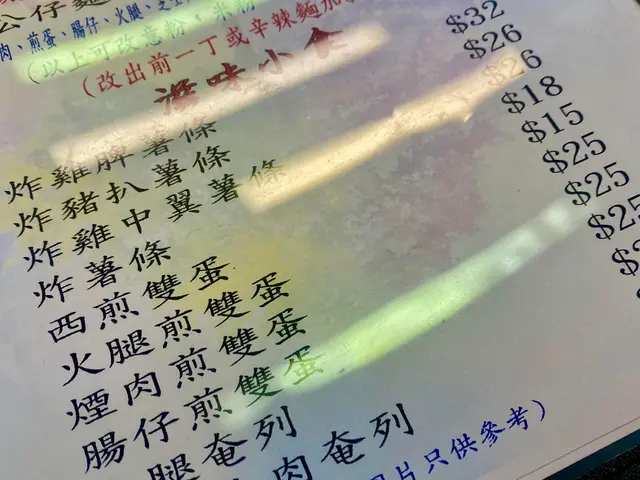 公仔麵
肉、煎蛋、腸仔、火腿、
(以上可改意粉、米粉
(改出前一丁或辛辣麵加
滋味小食
炸雞脾薯條
炸豬扒薯條
炸雞中翼薯條
炸薯條
西煎雙蛋
火腿煎雙蛋
煙肉煎雙蛋
腸仔煎雙蛋
腿奄列
肉奄列
片只供參考)
$32
$26
$26
$18
$15
$25
$25
$25